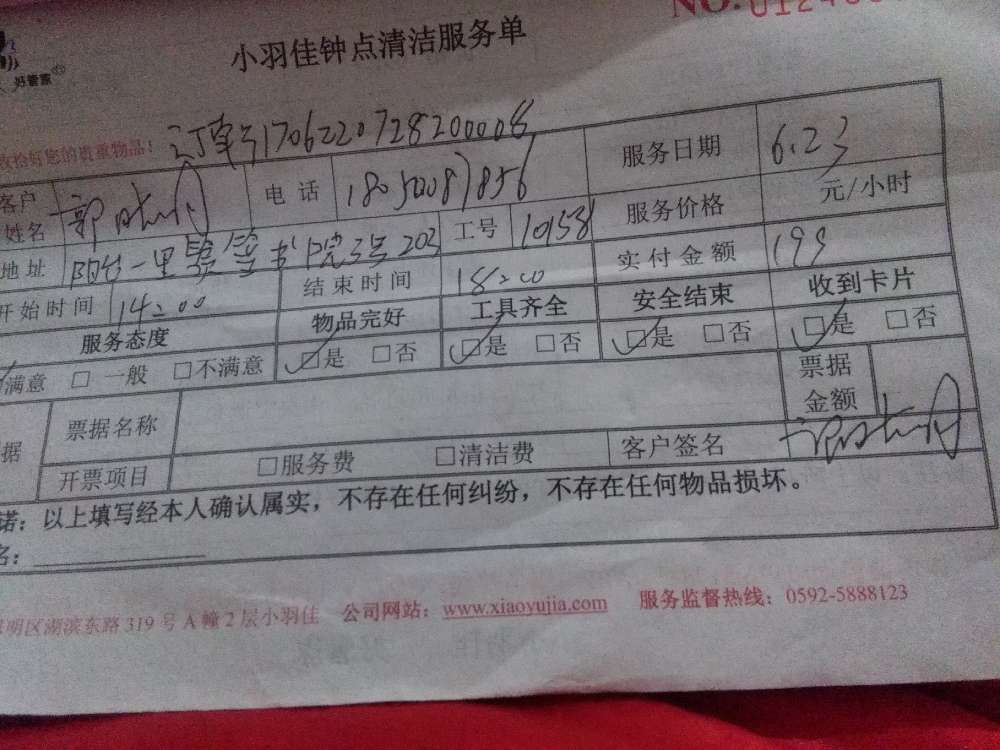 NO.
小羽佳钟点清洁服务单
好管家
收拾好您的贵重物品！ 订单号17062207282000008
客户姓名 电话 18050087856 服务日期 6.23
地址 工号 10158 服务价格 元/小时
开始时间 14:00 结束时间 18:00 实付金额 199
服务态度 物品完好 工具齐全 安全结束 收到卡片
满意 □ 一般 □不满意 □是 □否 □是 □否 □是 □否 □是 □否
据 票据名称 票据金额
开票项目 □服务费 □清洁费 客户签名
诺：以上填写经本人确认属实，不存在任何纠纷，不存在任何物品损坏。
名：
思明区湖滨东路 319 号 A 幢 2 层小羽佳 公司网站：www.xiaoyujia.com 服务监督热线：0592-5888123